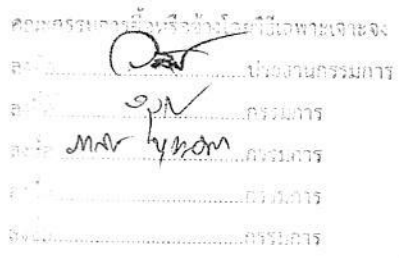 คณะกรรมการซื้อหรือจ้างโดยวิธีเฉพาะเจาะจง
ลงชื่อ..............................ประธานกรรมการ
ลงชื่อ..............................กรรมการ
ลงชื่อ..............................กรรมการ
ลงชื่อ..............................กรรมการ
ลงชื่อ..............................กรรมการ